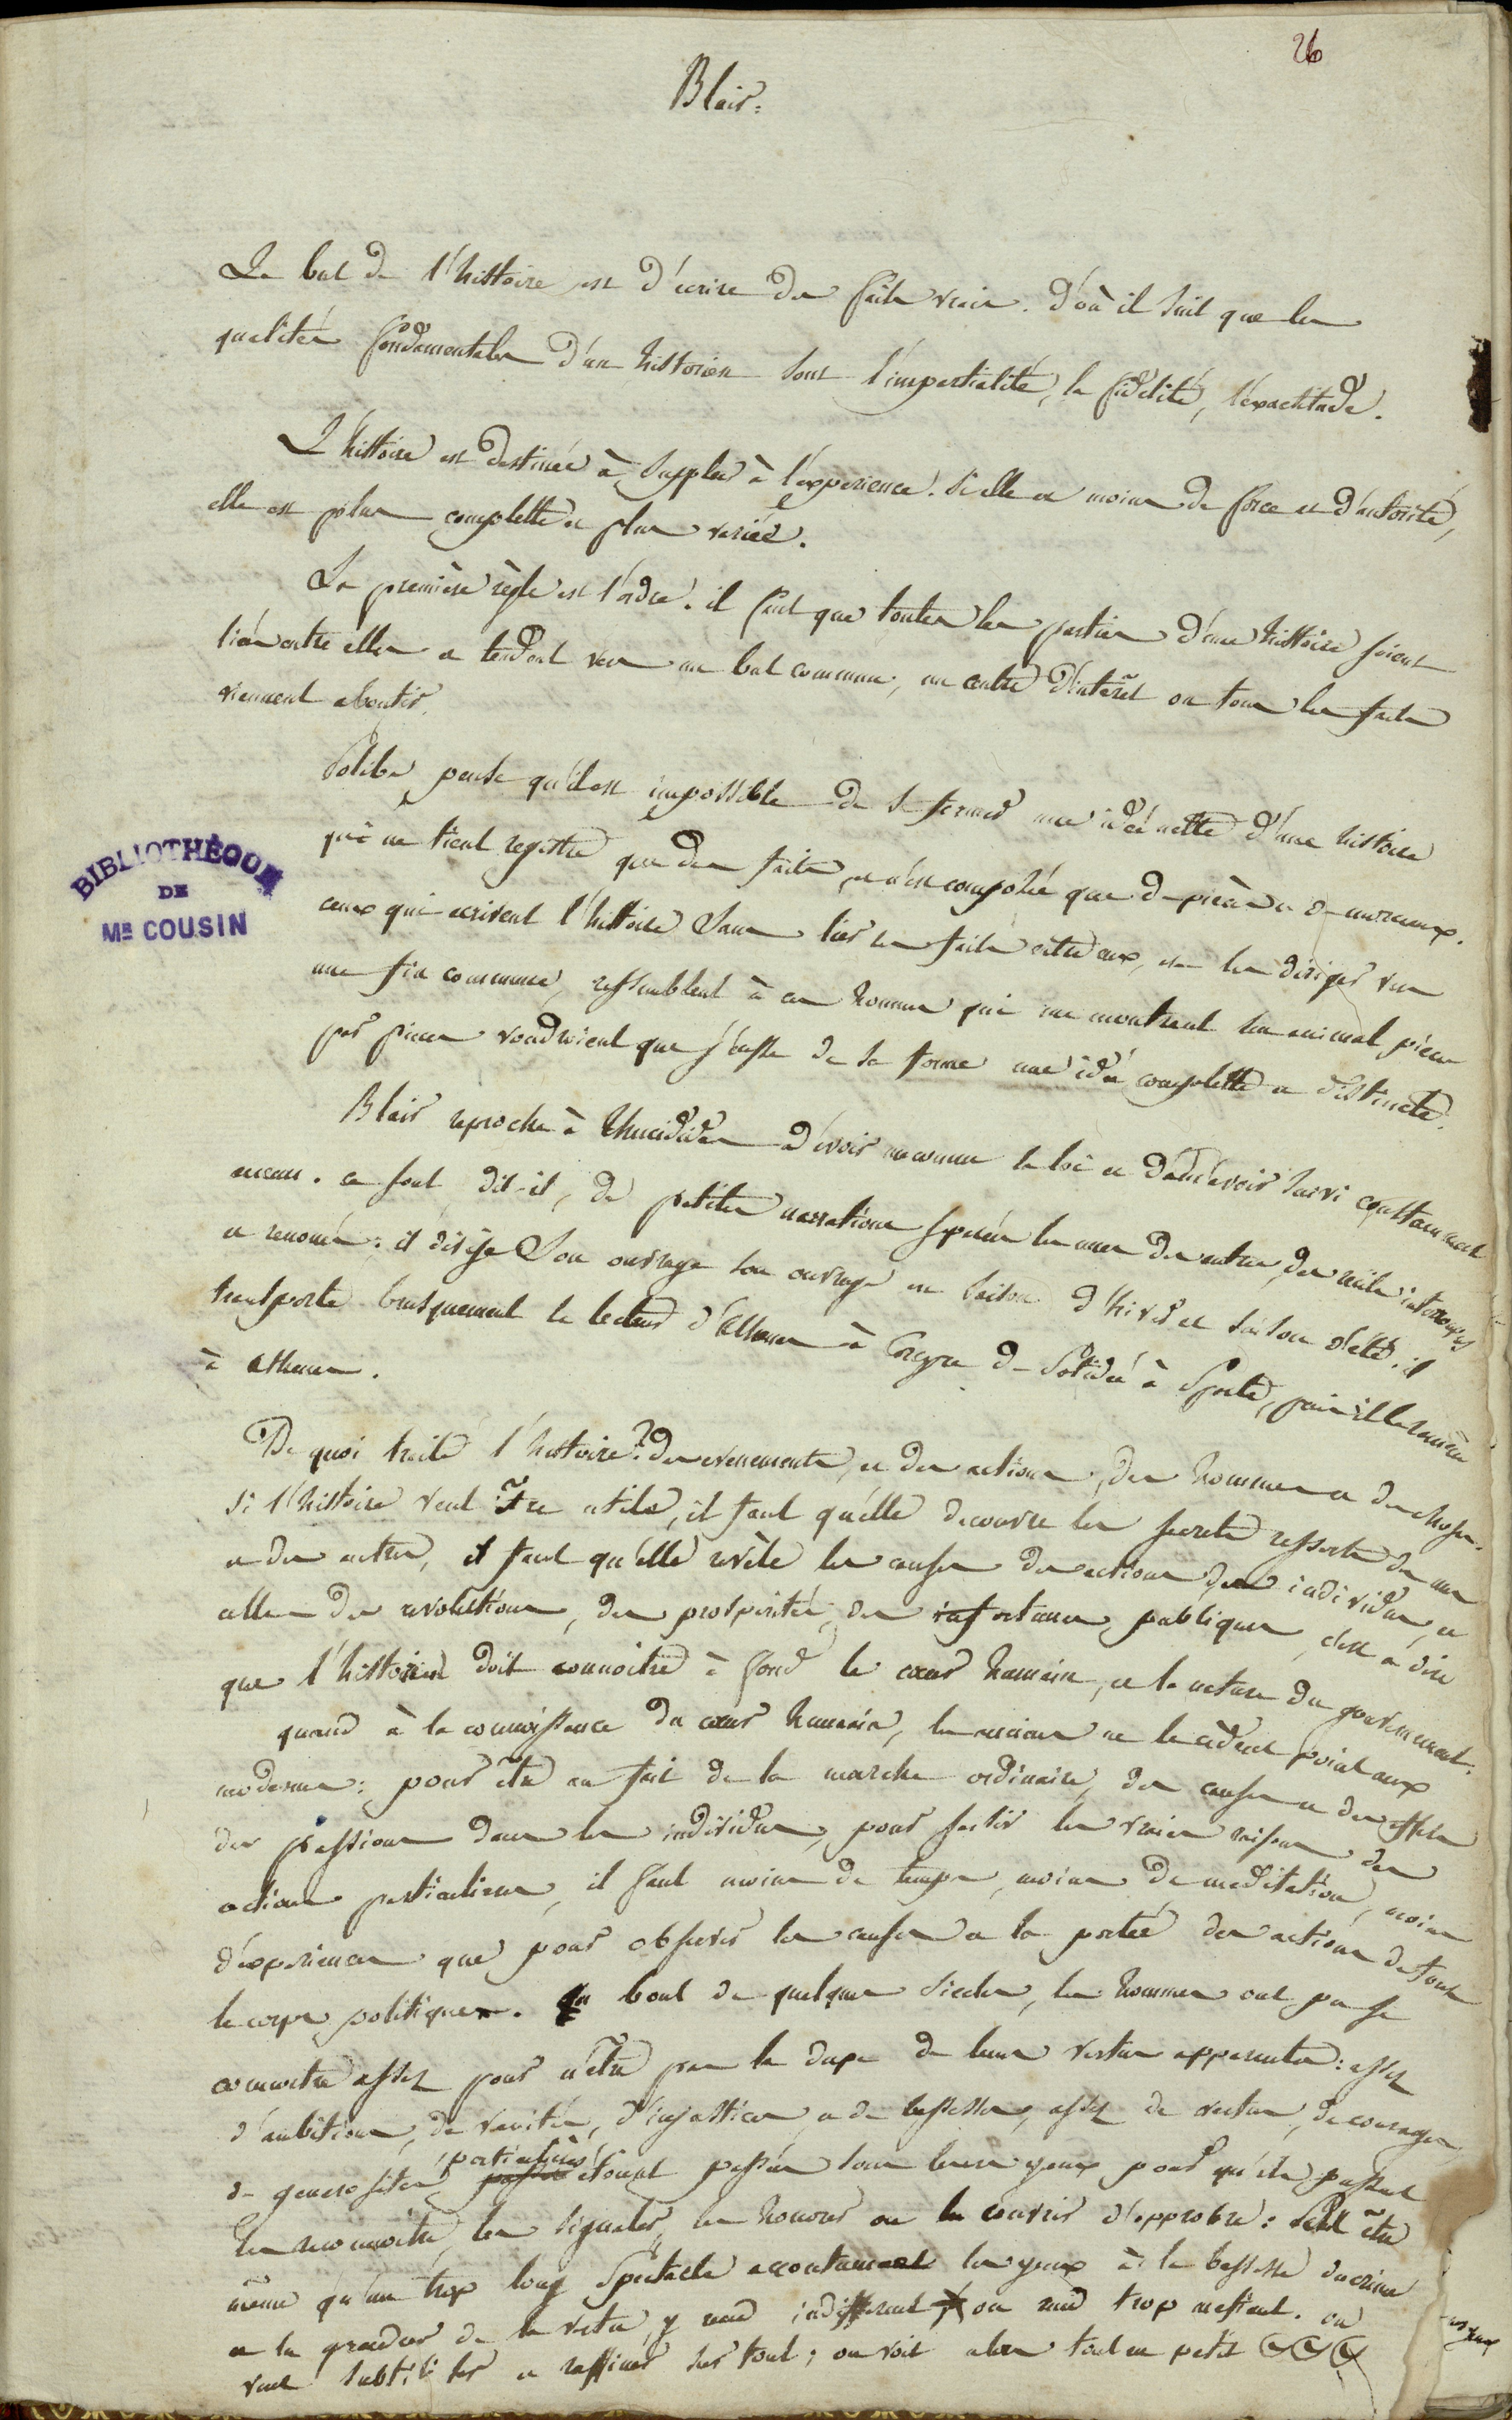 26
Blair.
Le but de l'histoire est d'écrire des faits vrais. d'où il suit que les
qualités fondamentales d'un historien sont l'impartialité, la fidélité, l'exactitude.
L'histoire est destinée à suppléer à l'expérience. Si elle a moins de force et d'autorité,
elle est plus complette et plus variée.
La première règle est l'ordre. il faut que toutes les parties d'une histoire soient
liées entre elles et tendent vers un but commun, un centre d'intérêt ou tous les faits
viennent aboutir.
Polibe pense qu'il est impossible de se former une idée nette d'une histoire
qui ne tient registre que des faits, et n'est composée que de pièces et de morceaux.
ceux qui ecrivent l'histoire sans lier les faits entre eux, et les diriger vers
une fin commune, ressemblent à un homme qui me montrant un animal pièces
par pièces voudroient que j'eusse de sa forme une idée complette et distincte.
Blair reproche à Thucidides d'avoir meconnu la loi et de n'en avoir suivi constamment
aucun. ce sont, dit-il, de petites narrations séparées les unes des autres, des récits interrompus
et renoués: il dirige son ouvrage son ouvrage en saison d'hiver et saison d'été. il
transporte brusquement le lecteur d'Athenes à Corcyre de Potidée à Sparte, puis il le ramène
à Athenes.
De quoi traite l'histoire? des evenements, et des actions, des hommes et des choses.
si l'histoire veut être utile, il faut qu'elle decouvre les secrets ressorts des uns
et des autres, il faut qu'elle revèle les causes des actions des individus, et
celles des revolutions, des prospérités, des infortunes publiques, c'est à dire
que l'historien doit connoitre à fond le cœur humain, et la nature du gouvernement.
quand à la connoissance du cœur humain, les anciens ne le cèdent point aux
modernes: pour être au fait de la marche ordinaire, des causes et des effets
des passions dans les individus, pour saisir les vraies raisons des
actions particulieres, il faut moins de temps, moins de meditation, moins
d'experiences que pour observer les causes et la portée des actions de tout
le corps politique. Au bout de quelques siecles, les hommes ont pu se
connoitre assez pour n'être pas la dupe de leurs vertus apparentes: assez
d'ambitions, de vanités, d'injustices, et de bassesses, assez de vertus, de courages,
de generosités particulières étoient passées sous leurs yeux pour qu'ils pussent
les reconnoitre, les signaler, les honorer ou les couvrir d'opprobre: peut être
même qu'un trop long spectacle accoutumant les yeux à la bassesse du crime
et la grandeur de la vertu, y rend indifferent ou rend trop mefiant. on
veut subtiliser et raffiner sur tout; on voit alors tout en petit
BIBLIOTHÈQUE
DE
MR COUSIN